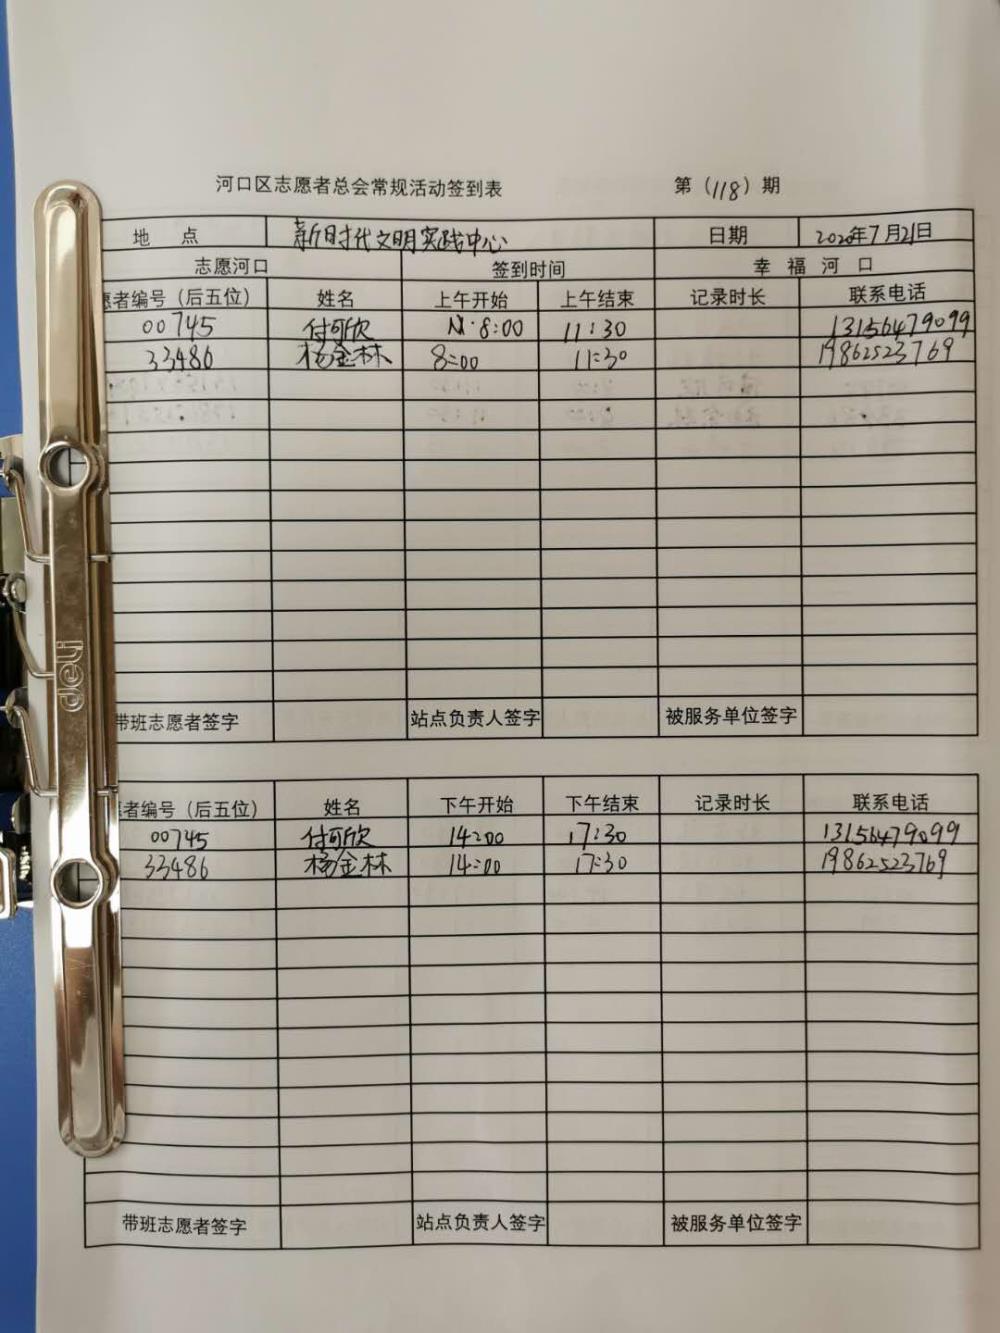 河口区志愿者总会常规活动签到表 第（118）期
地 点 新时代文明实践中心 日期 2020年7月21日
志愿河口 签到时间 幸 福 河 口
愿者编号（后五位） 姓名 上午开始 上午结束 记录时长 联系电话
00745 付可欣 8:00 11:30 13156479099
33486 杨金林 8:00 11:30 19862523769
带班志愿者签字 站点负责人签字 被服务单位签字
愿者编号（后五位） 姓名 下午开始 下午结束 记录时长 联系电话
00745 付可欣 14:00 17:30 13156479099
33486 杨金林 14:00 17:30 19862523769
带班志愿者签字 站点负责人签字 被服务单位签字
deli